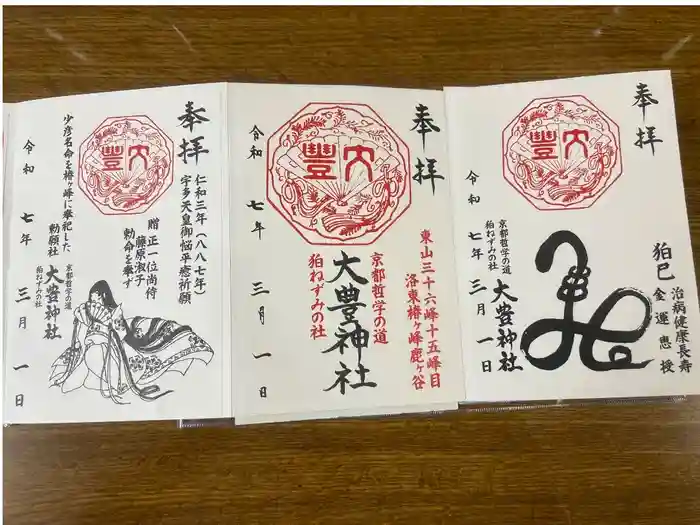 奉拝
仁和三年(八八七年)
宇多天皇御悩平癒祈願
贈正一位尚侍
藤原淑子
勅命を奉ず
少彦名命を椿ヶ峰に奉祀した
勅願社
京都哲学の道
狛ねずみの社
大豊神社
令和七年三月一日
大豐
奉拝
東山三十六峰十五峰目
洛東椿ヶ峰鹿ヶ谷
京都哲学の道
狛ねずみの社
大豊神社
令和七年三月一日
大豐
奉拝
狛巳
治病健康長寿
金運恵授
京都哲学の道
狛ねずみの社
大豊神社
令和七年三月一日
大豐